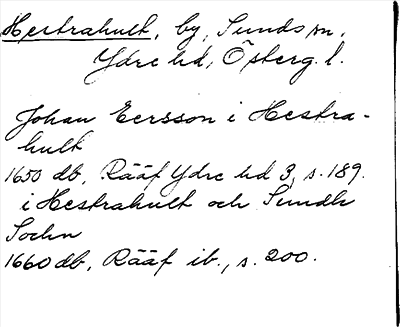 Hestrahult, by, Sunds sn,
Ydre hd, Österg. l.
Johan Eersson i Hestra-
hult
1650 db, Rääf Ydre hd 3, s. 189.
i Hestrahult och Sundh
Sochn
1660 db, Rääf ib., s. 200.